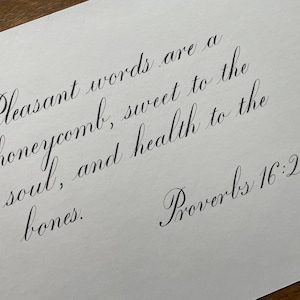 Pleasant words are a
honeycomb, sweet to the
soul, and health to the
bones.
Proverbs 16:2